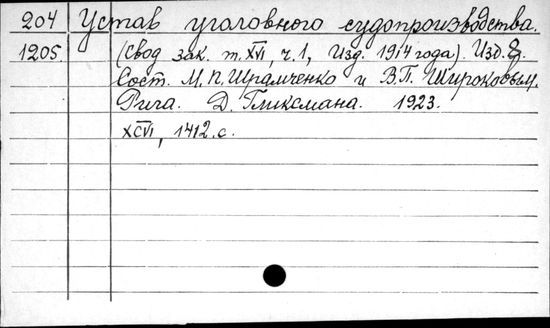 204 Устав уголовного судопроизводства.
1205 (Свод зак. т. XVI, ч. 1, Изд. 1914 года). Изд. 8.
Сост. М. П. Шрамченко и В. П. Широковым.
Рига. Д. Гликсмана. 1923.
XCVI, 1412 с.